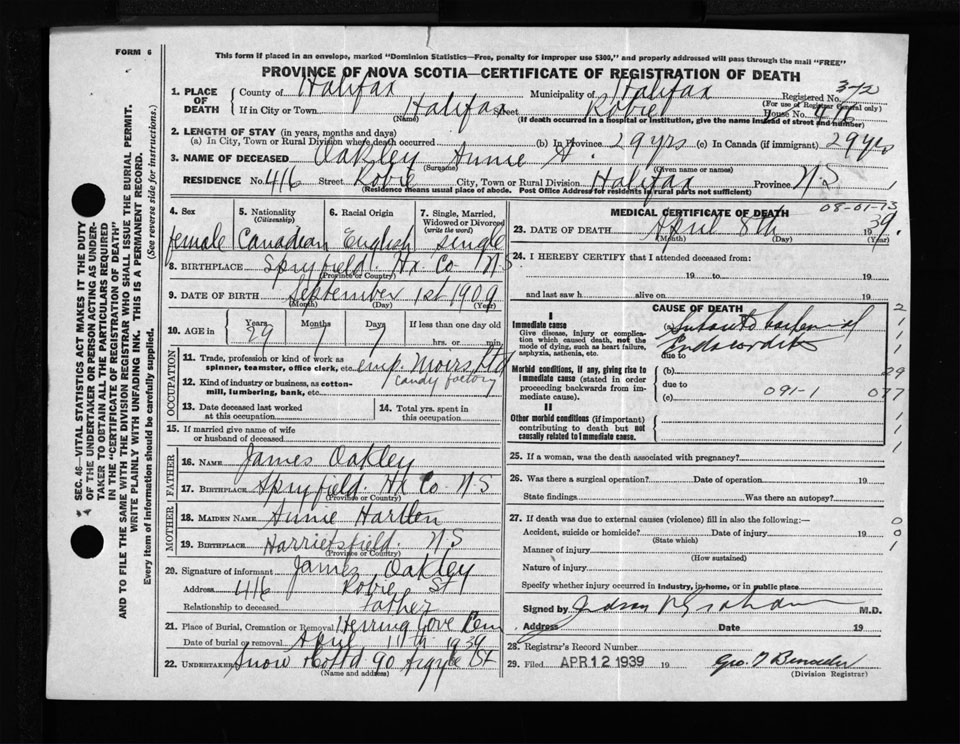 FORM 6
This form if placed in an envelope, marked "Dominion Statistics—Free, penalty for improper use $300," and properly addressed will pass through the mail "FREE"
PROVINCE OF NOVA SCOTIA—CERTIFICATE OF REGISTRATION OF DEATH
SEC. 46—VITAL STATISTICS ACT MAKES IT THE DUTY
OF THE UNDERTAKER OR PERSON ACTING AS UNDER-
TAKER TO OBTAIN ALL THE PARTICULARS REQUIRED
IN THE "CERTIFICATE OF REGISTRATION OF DEATH"
AND TO FILE THE SAME WITH THE DIVISION REGISTRAR WHO SHALL ISSUE THE BURIAL PERMIT.
WRITE PLAINLY WITH UNFADING INK. THIS IS A PERMANENT RECORD.
Every item of information should be carefully supplied. (See reverse side for instructions.)
1. PLACE OF DEATH
County of Halifax Municipality of Halifax Registered No. 372
(For use of Registrar General only)
If in City or Town Halifax Street Robie House No. 416
(Name) (If death occurred in a hospital or institution, give the name instead of street and number)
2. LENGTH OF STAY (in years, months and days)
(a) In City, Town or Rural Division where death occurred (b) In Province 29 yrs (c) In Canada (if immigrant) 29 yrs
3. NAME OF DECEASED Oakley Annie
(Surname) (Given name or names)
RESIDENCE No. 416 Street Robie City, Town or Rural Division Halifax Province N S
(Residence means usual place of abode. Post Office Address for residents in rural parts not sufficient)
4. Sex 5. Nationality (Citizenship) 6. Racial Origin 7. Single, Married, Widowed or Divorced (write the word)
female Canadian English single
8. BIRTHPLACE Spryfield. Hx Co N S
(Province or Country)
9. DATE OF BIRTH September 1st 1909
(Month) (Day) (Year)
10. AGE in Years Months Days If less than one day old
29 7 7 hrs. or min.
OCCUPATION
11. Trade, profession or kind of work as spinner, teamster, office clerk, etc. emp. Moirs Ltd
12. Kind of industry or business, as cotton-mill, lumbering, bank, etc. candy factory
13. Date deceased last worked at this occupation
14. Total yrs. spent in this occupation
15. If married give name of wife or husband of deceased
FATHER
16. NAME James Oakley
17. BIRTHPLACE Spryfield. Hx Co N S
(Province or Country)
MOTHER
18. MAIDEN NAME Annie Hartlen
19. BIRTHPLACE Harrietsfield. N S
(Province or Country)
20. Signature of informant James Oakley
Address 416 Robie St
Relationship to deceased father
21. Place of Burial, Cremation or Removal Herring Cove Cem
Date of burial or removal April 11th 1939
22. UNDERTAKER Snow Co Ltd 90 Argyle St
(Name and address)
MEDICAL CERTIFICATE OF DEATH
08-01-13
23. DATE OF DEATH April 8th 1939.
(Month) (Day) (Year)
24. I HEREBY CERTIFY that I attended deceased from:
19 to 19
and last saw h alive on 19
CAUSE OF DEATH
I
Immediate cause
Give disease, injury or complication which caused death, not the mode of dying, such as heart failure, asphyxia, asthenia, etc.
Endocarditis
due to
Morbid conditions, if any, giving rise to immediate cause (stated in order proceeding backwards from immediate cause).
(b) 29
due to
(c) 091-1 077
II
Other morbid conditions (if important) contributing to death but not causally related to immediate cause.
25. If a woman, was the death associated with pregnancy?
26. Was there a surgical operation? Date of operation 19
State findings Was there an autopsy?
27. If death was due to external causes (violence) fill in also the following:—
Accident, suicide or homicide? Date of injury 19
(State which)
Manner of injury
(How sustained)
Nature of injury
Specify whether injury occurred in industry, in home, or in public place
Signed by Judson Graham M.D.
Address Date 19
28. Registrar's Record Number
29. Filed APR 12 1939 19
(Division Registrar)